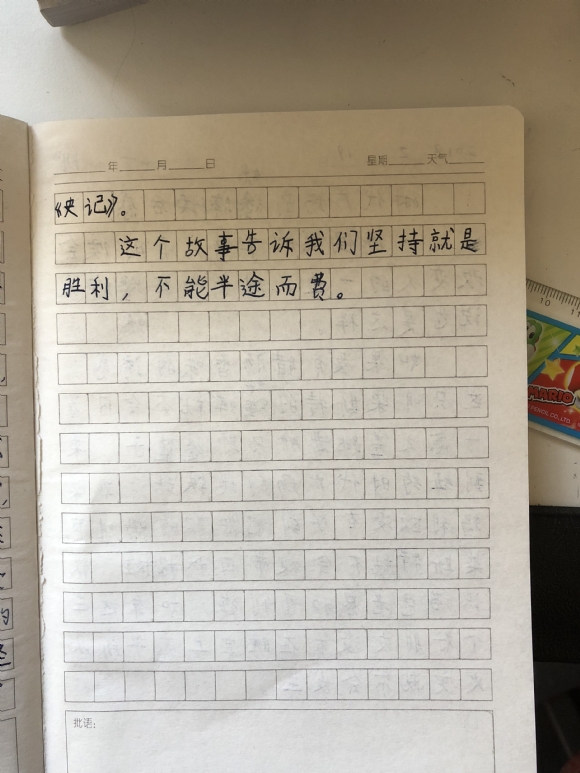 年 月 日 星期 天气
《史记》。
这个故事告诉我们坚持就是
胜利，不能半途而费。
批语：
10
11
MARIO
PENCIL CO.,LTD